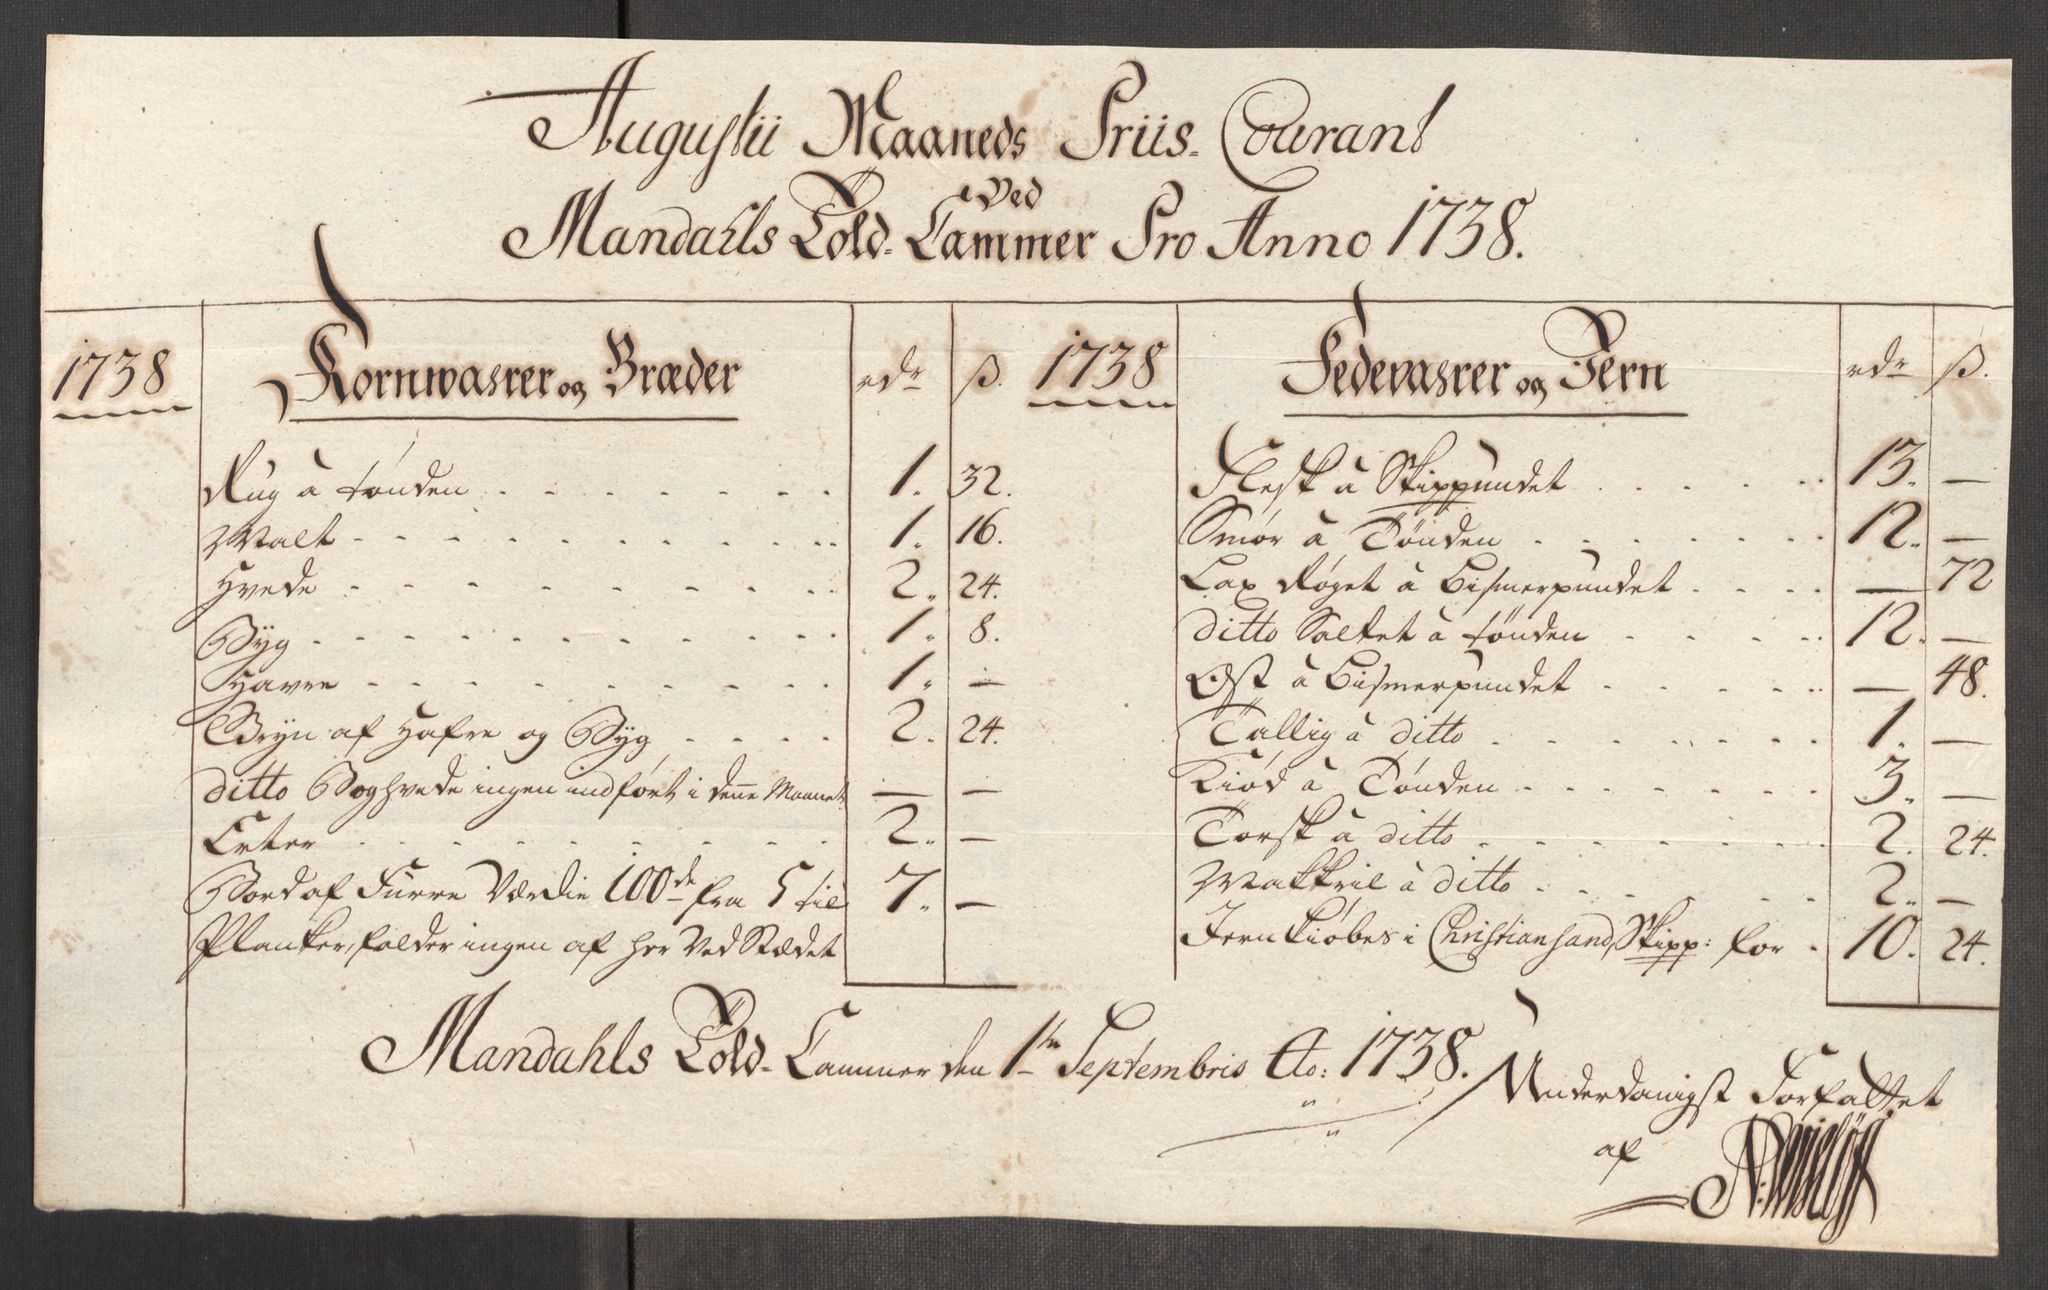 Augustii Maaneds Priis-Courant
ved
Mandahls Told-Cammer Pro Anno 1738.
1738 Kornwahrer og Bræder rdr ß.
Rug â tønden 1. 32.
Malt 1. 16.
Hvede 2. 24.
Byg 1. 8.
Havre 1. —
Gryn af Hafre og Byg 2. 24.
ditto Boghvede ingen indført i denne Maanet — —
Erter 2. —
Bord af Furre Værdie 100de fra 5 til 7. —
Planker, falder ingen af her ved Stædet
1738 Fedevahrer og Jern rdr ß.
Flesk â Skippundet 13. —
Smør â Tønden 12. —
Lax Røget â Bismerpundet — 72
ditto Saltet â tønden 12. —
Ost â Bismerpundet — 48.
Tallig â ditto 1. —
Kiød â Tønden 3. —
Torsk â ditto 2. 24.
Makkril â ditto 2. —
Jern kiøbes i Christiansand, Skipp: for 10. 24.
Mandahls Told-Cammer den 1te Septembris Ao: 1738.
Underdanigst Forfattet
af